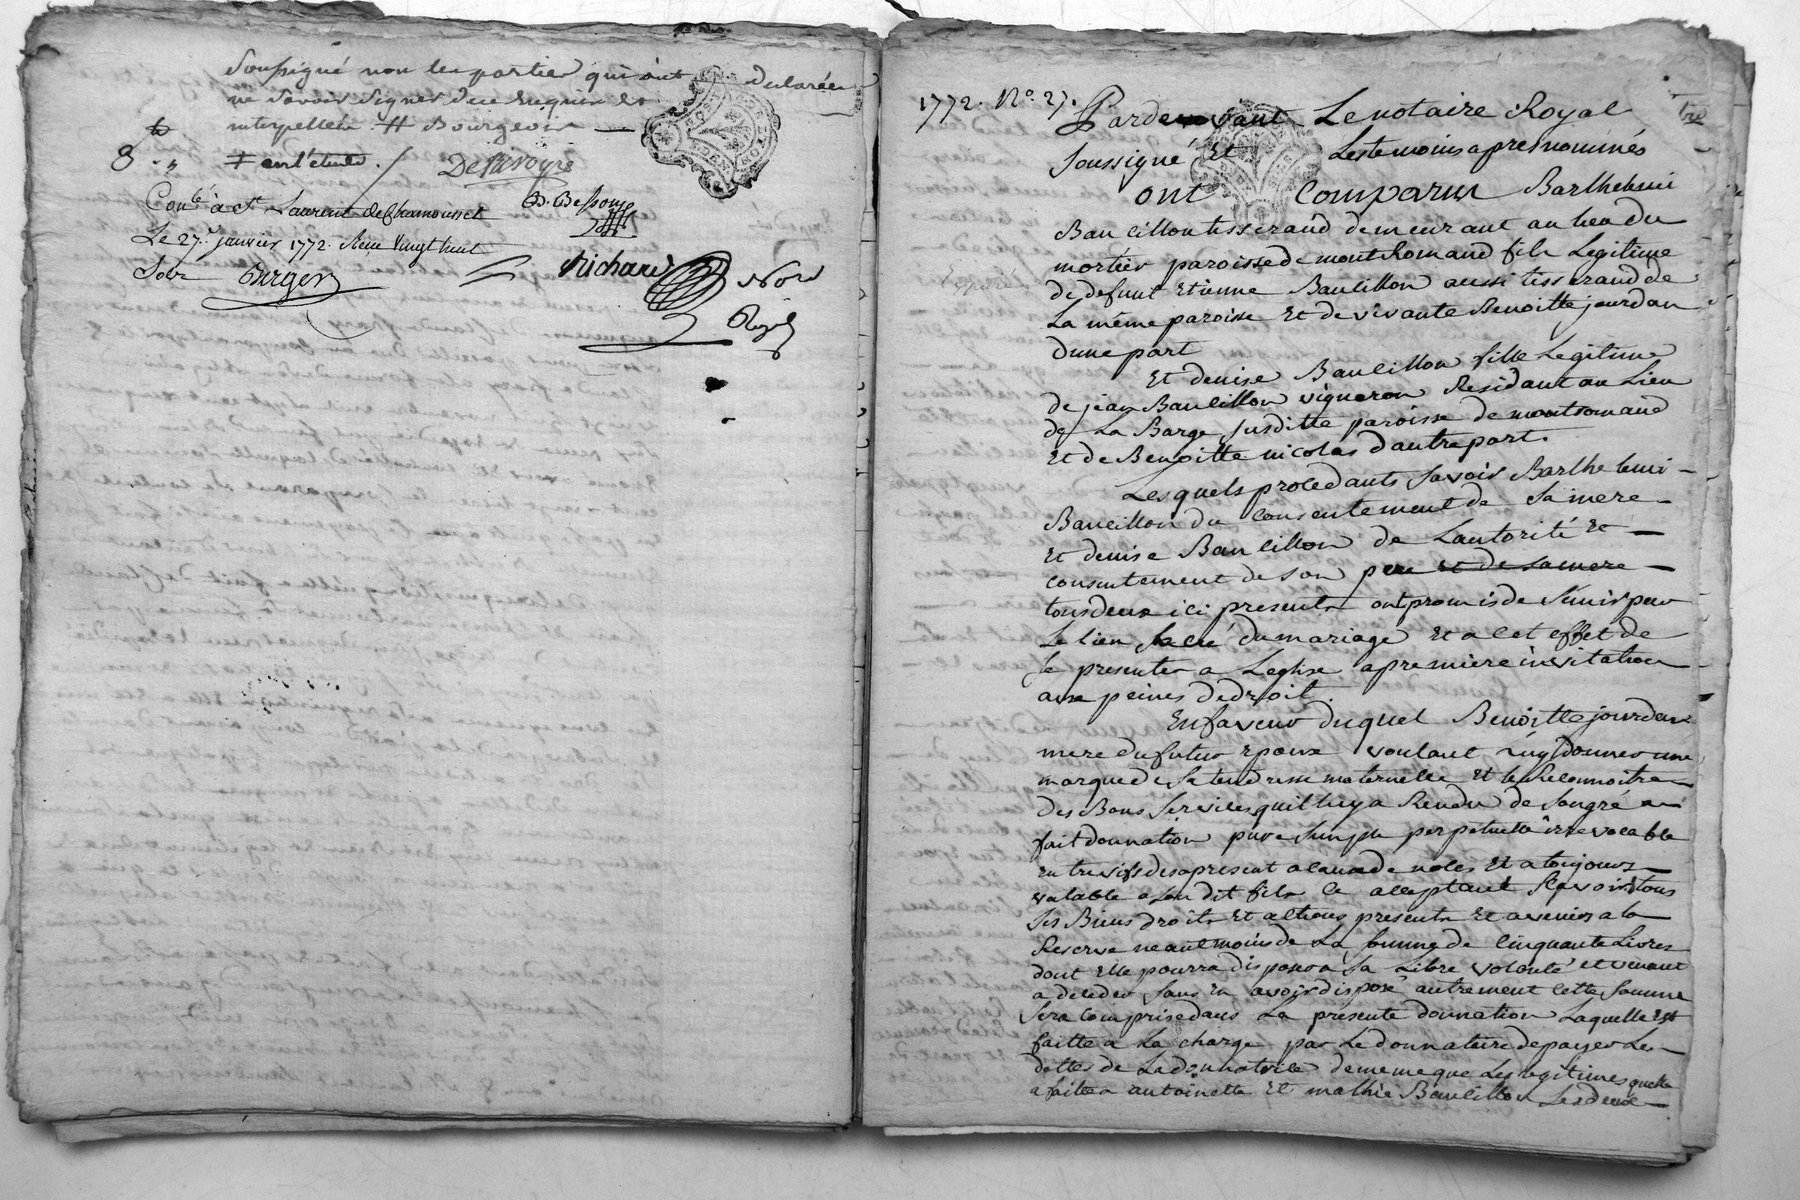 soussigné non les parties qui ont declarées
ne savoir signer de ce enquises et
interpellées # Bourgeois —
8 # en l'etude ./ Depinoyre
Con.lé à St Laurent de Chamousset B. Bessony
Le 27.e janvier 1772. Reçu vingt huit
Sols Berger Richard Nore
Royl
1772. N.o 27.
Pardevant Le notaire Royal
soussigné Et Les temoins apres nommés
ont Comparus Barthelemi
Baucillon tisserand demeurant au lieu du
mortier paroisse de montRomand fils Legitime
de defunt Etienne Baucillon aussi tisserand de
La même paroisse Et de vivante Benoitte jourdan
dune part
Et denise Baucillon fille Legitime
de jean Baucillon vigneron Residant au Lieu
de La Barge susditte paroisse de montromand
Et de Benoitte nicolas dautre part.
Lesquels procedants savoir Barthelemi –
Baucillon du consentement de sa mere –
Et denise Baucillon de Lautorité Et –
consentement de son pere et de sa mere –
tous deux ici presents ont promis de s'unir par
Le lien sacré du mariage Et a cet effet de
se presenter a Leglise a premiere invitation
aux peines de droit.
En faveur duquel Benoitte jourdan
mere du futur Epoux voulant Luy donner une
marque de sa tendresse maternelle Et le Reconnoitre
des Bons services quil luy a Rendu de son gré a
fait donnation pure simple perpetuelle irrevocable
entre vifs des apresent a cause de noces Et a toujours
valable a son dit fils ce acceptant sçavoir tous
ses Biens droits Et actions presents Et avenirs a la
Reserve neantmoins de La somme de cinquante Livres
dont Elle pourra disposer a sa Libre volonté et venant
a deceder sans en avoir disposé autrement cette somme
sera comprise dans La presente donnation Laquelle Est
faitte a La charge par Le donnataire de payer Les –
dettes de La donnatrice de meme que Les legitimes quelle
a faitte a antoinette Et mathie Baucillon Les deux –